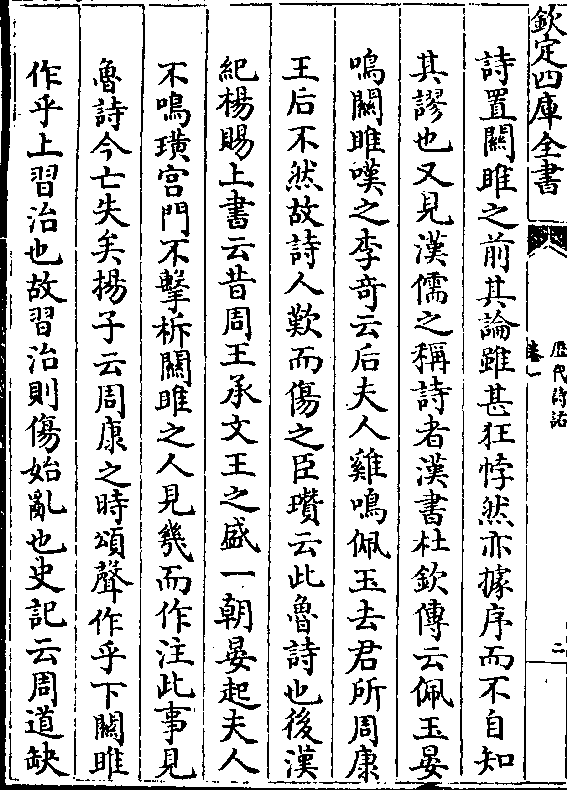 欽定四庫全書
歷代詩話
卷一
二
詩置關雎之前其論雖甚狂悖然亦據序而不自知
其謬也又見漢儒之稱詩者漢書杜欽傳云佩玉晏
鳴關雎嘆之李奇云后夫人雞鳴佩玉去君所周康
王后不然故詩人歎而傷之臣瓚云此魯詩也後漢
紀楊賜上書云昔周王承文王之盛一朝晏起夫人
不鳴璜宮門不擊柝關雎之人見幾而作注此事見
魯詩今亡失矣揚子云周康之時頌聲作乎下關雎
作乎上習治也故習治則傷始亂也史記云周道缺